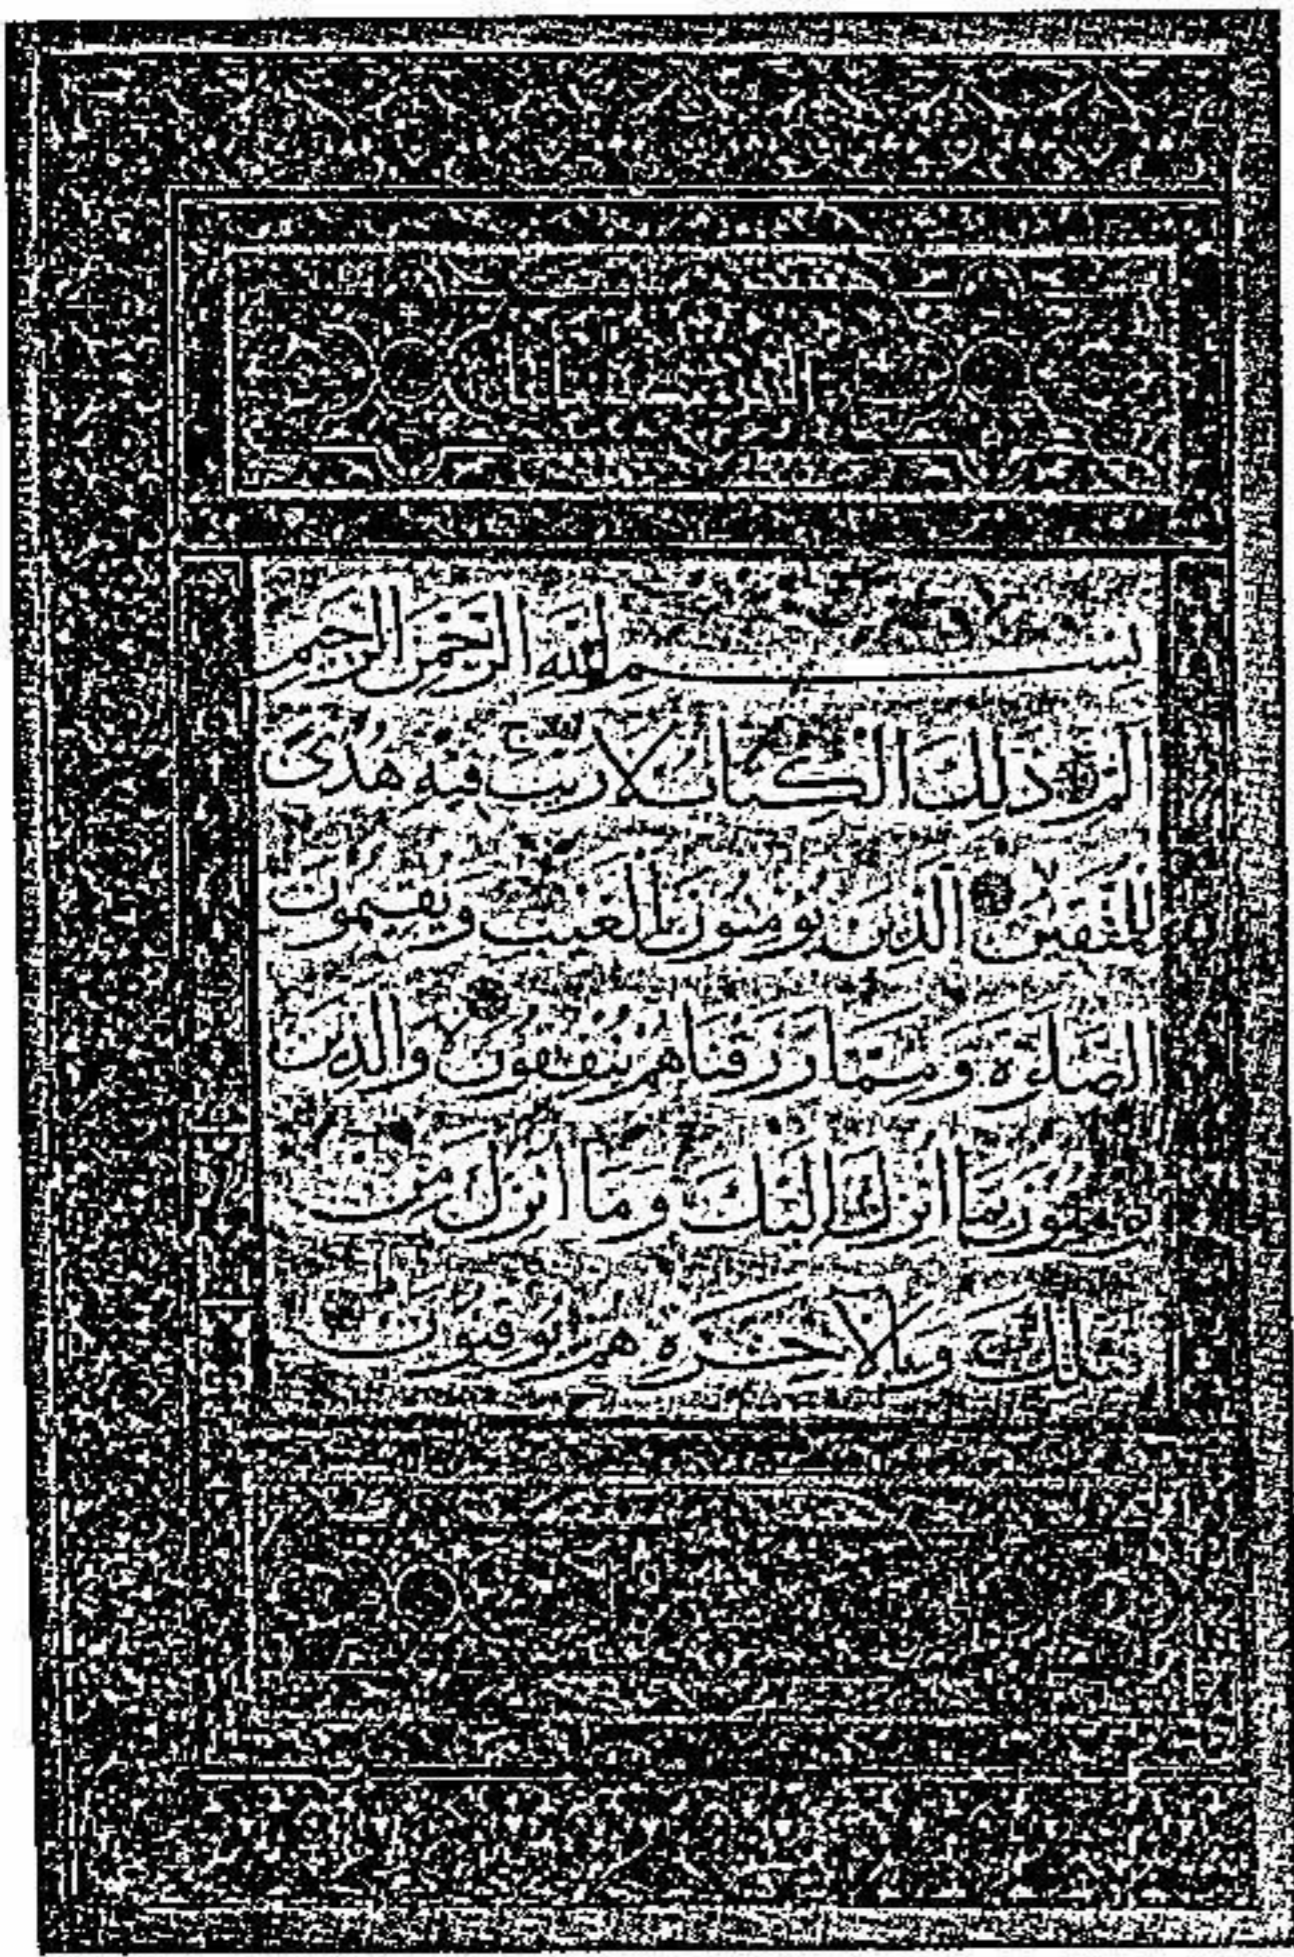 بِسْمِ اللهِ الرَّحْمٰنِ الرَّحِيمِ
الم ذَلِكَ الْكِتَابُ لَا رَيْبَ فِيهِ هُدًى
لِلْمُتَّقِينَ الَّذِينَ يُؤْمِنُونَ بِالْغَيْبِ وَيُقِيمُونَ
الصَّلوةَ وَمِمَّا رَزَقْنَاهُمْ يُنْفِقُونَ وَالَّذِينَ
يُؤْمِنُونَ بِمَا أُنْزِلَ إِلَيْكَ وَمَا أُنْزِلَ مِنْ
قَبْلِكَ وَبِالْآخِرَةِ هُمْ يُوقِنُونَ